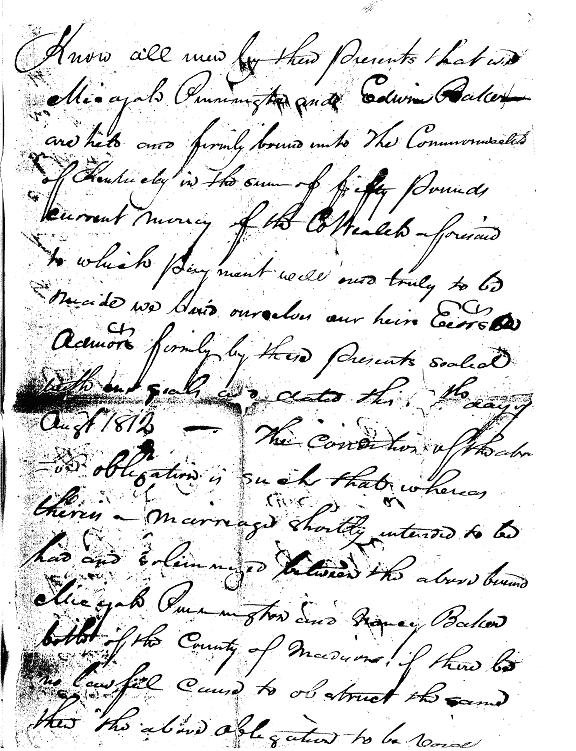 Know all men by these Presents that we
Micajah Pennington and Edwin Baker
are held and firmly bound unto the Commonwealth
of Kentucky in the sum of fifty Pounds
current money of the CoWealth aforesaid
to which payment well and truly to be
made we bind ourselves our heirs Exors &
Admors firmly by these Presents sealed
with our seals and dated this th day of
Augt 1812 — The Condition of the abo
ve obligation is such that whereas
theris a marriage shortly intended to be
had and solemnized between the above bound
Micajah Pennington and Nancy Baker
both of the County of Madison, if there be
no lawful cause to obstruct the same
then the above obligation to be void